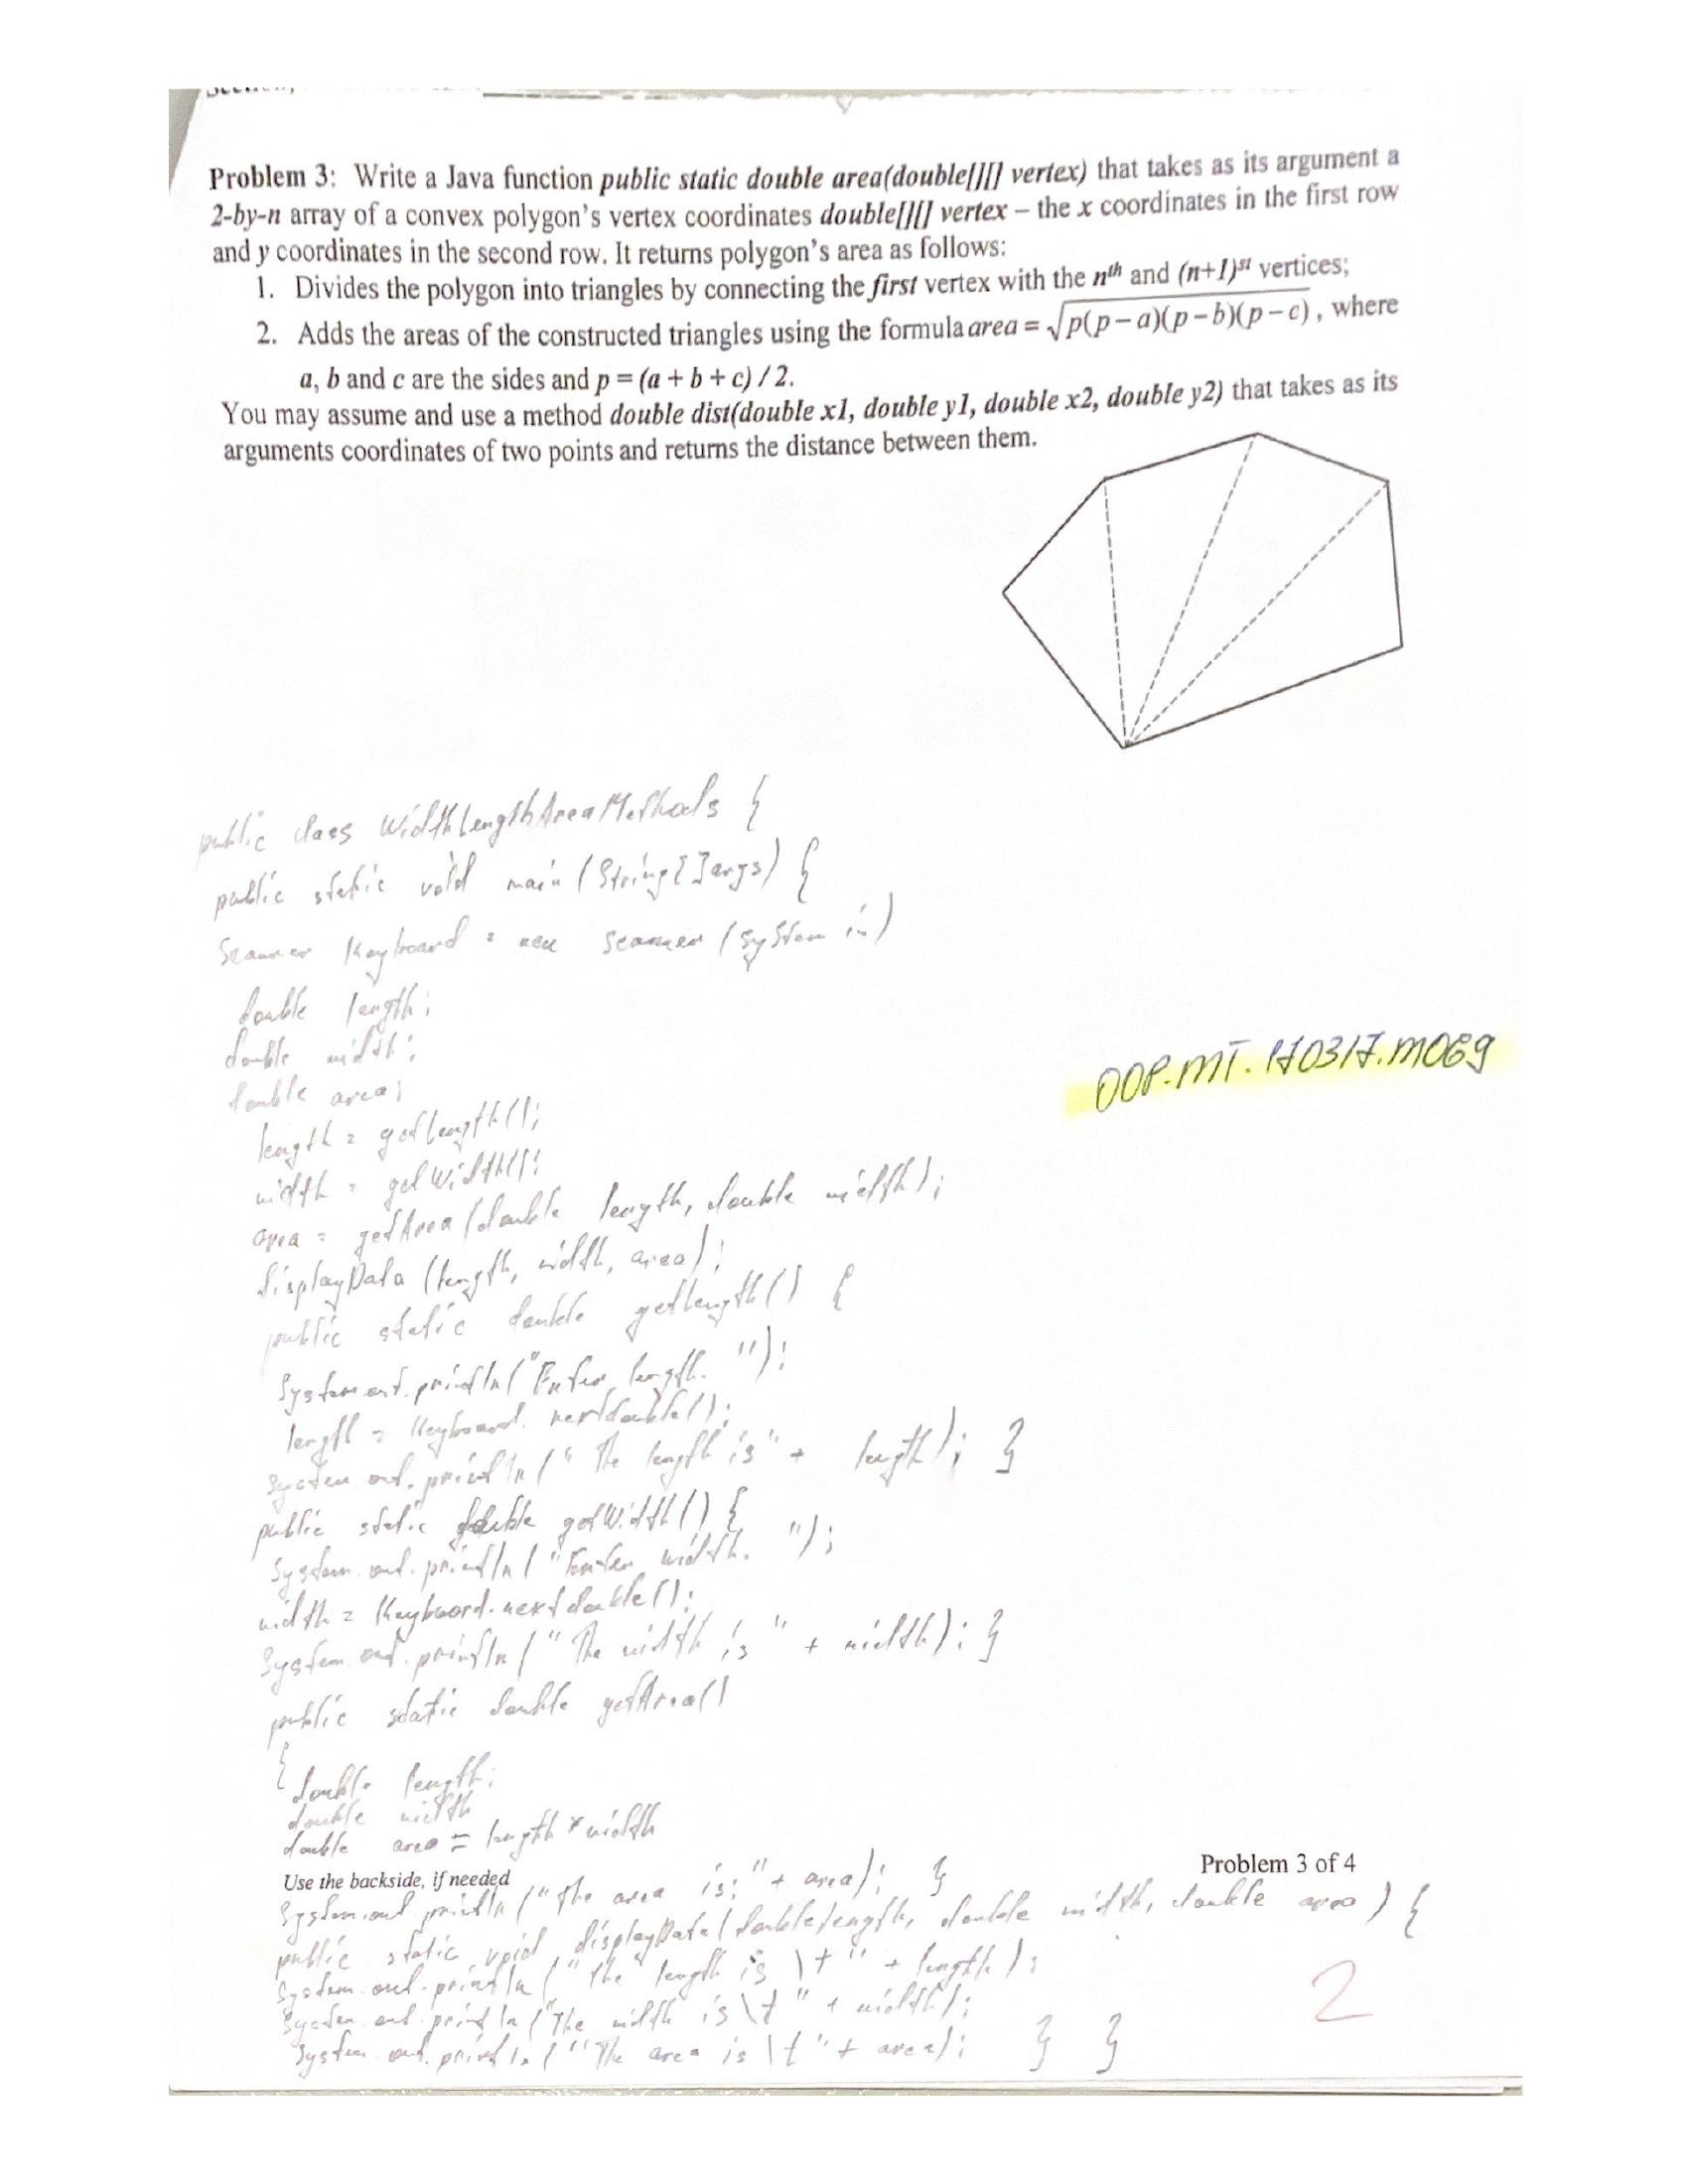 Problem 3: Write a Java function public static double area(double[][] vertex) that takes as its argument a
2-by-n array of a convex polygon's vertex coordinates double[][] vertex – the x coordinates in the first row
and y coordinates in the second row. It returns polygon's area as follows:
1. Divides the polygon into triangles by connecting the first vertex with the nth and (n+1)st vertices;
2. Adds the areas of the constructed triangles using the formula area = √p(p−a)(p−b)(p−c), where
a, b and c are the sides and p = (a + b + c) / 2.
You may assume and use a method double dist(double x1, double y1, double x2, double y2) that takes as its
arguments coordinates of two points and returns the distance between them.
public class WidthLengthAreaMethods {
public static void main (String[] args) {
Scanner Keyboard = new scanner (system in)
double length;
double width;
double area;
OOP.MT.170317.M069
length = getlength();
width = getWidth();
area = getArea (double length, double width);
displayData (length, width, area);
public static double getlength() {
System.out.println("Enter length. ");
length = Keyboard. nextdouble();
System.out.println (" The length is" + length); }
public static double getWidth() {
System.out.println ("Enter width. ");
width = Keyboard.nextdouble();
System.out.println (" The width is " + width); }
public static double getArea()
{
double length;
double width
double area = length * width
Use the backside, if needed
Problem 3 of 4
System.out println ("The area is:" + area); }
public static void displayData (double length, double width, double area) {
System.out.println ("The length is \t" + length);
System.out.println ("The width is \t" + width);
System.out.println ("The area is \t" + area); } }
2